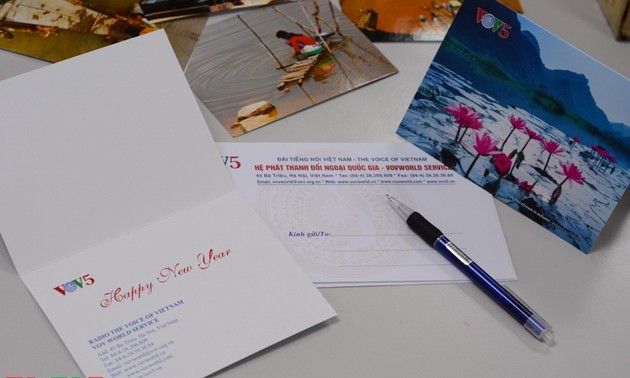 VOV5
VOV5
ĐÀI TIẾNG NÓI VIỆT NAM - THE VOICE OF VIETNAM
HỆ PHÁT THANH ĐỐI NGOẠI QUỐC GIA - VOVWORLD SERVICE
45 Bà Triệu, Hà Nội, Việt Nam * Tel: (84-4) 38.266.809 * Fax: (84-4) 39.39.36.84
Email: vovworld@vov.org.vn * Web: www.vovworld.com * www.vov5.vn
Kính gửi/To:
VOV5
Happy New Year
RADIO THE VOICE OF VIETNAM
VOV WORLD SERVICE